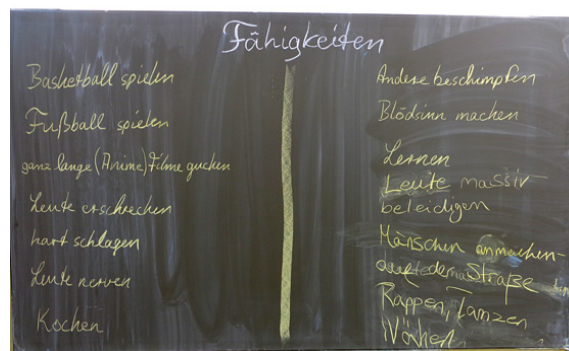 Fähigkeiten
Basketball spielen
Fußball spielen
ganz lange (Anime) Filme gucken
Leute erschrecken
hart schlagen
Leute nerven
Kochen
Andere beschimpfen
Blödsinn machen
Lernen
Leute massiv
beleidigen
Mänschen anmachen
auf der Straße
Rappen, Tanzen